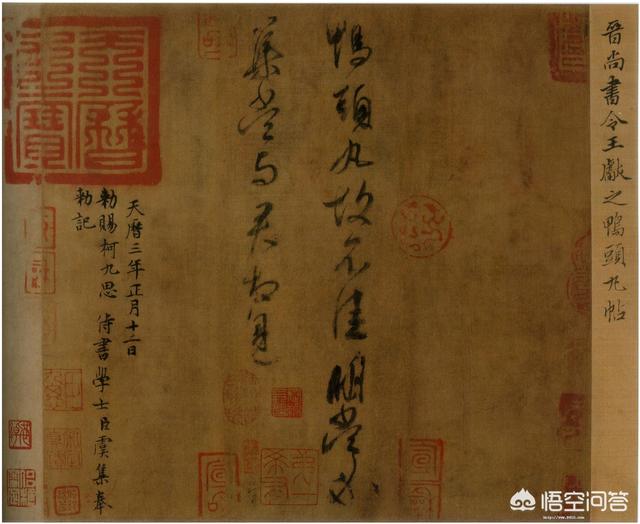 晉尚書令王獻之鴨頭丸帖
鴨頭丸故不佳明當必
集當與君相見
天曆三年正月十二日
勑賜柯九思侍書學士臣虞集奉
勑記
天曆之寶
悟空问答